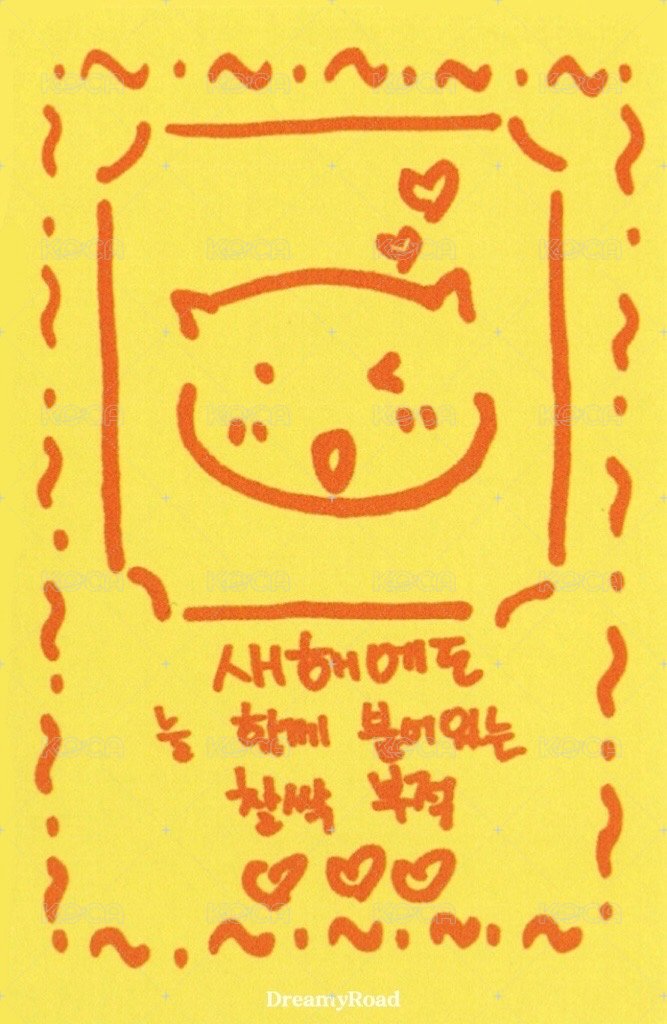 새해에도
능 함께 붙어있는
찰싹 부적
DreamyRoad
KOCA